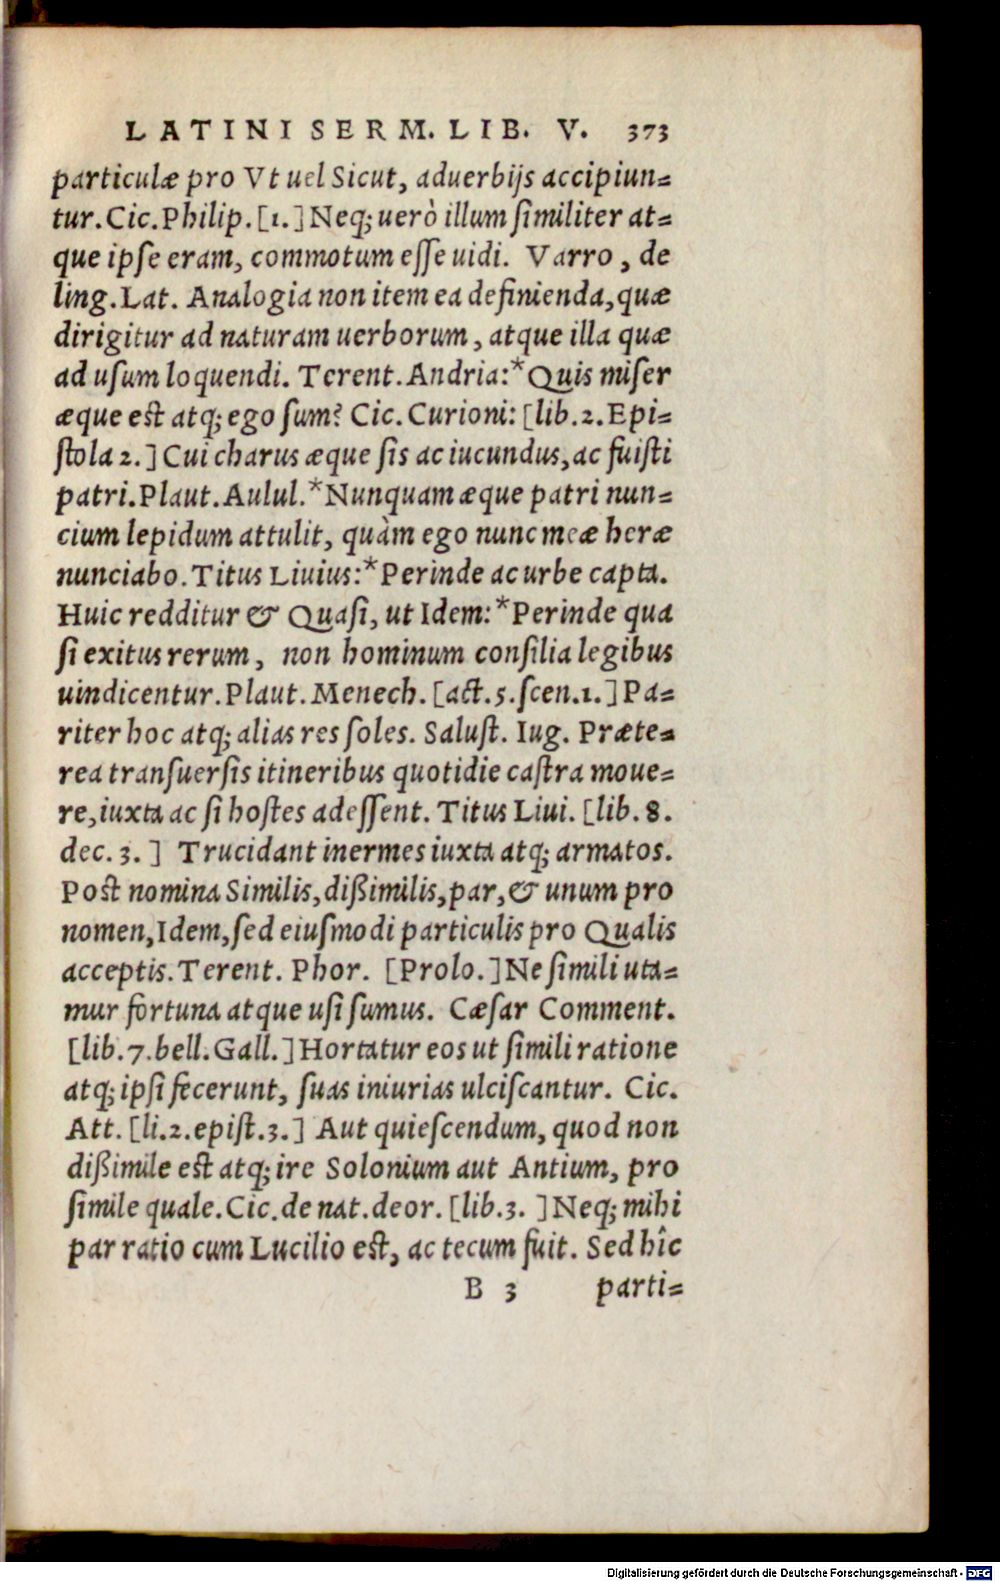 LATINI SERM. LIB. V. 373
particulæ pro Vt uel Sicut, aduerbijs accipiun=
tur. Cic. Philip. [1.] Neq; uerò illum ſimiliter at=
que ipſe eram, commotum eſſe uidi. Varro, de
ling. Lat. Analogia non item ea definienda, quæ
dirigitur ad naturam uerborum, atque illa quæ
ad uſum loquendi. Terent. Andria:*Quis miſer
æque est atq; ego ſum? Cic. Curioni: [lib.2. Epi=
ſtola 2.] Cui charus æque ſis ac iucundus, ac fuiſti
patri. Plaut. Aulul.*Nunquam æque patri nun=
cium lepidum attulit, quàm ego nunc meæ heræ
nunciabo. Titus Liuius:*Perinde ac urbe capta.
Huic redditur & Quaſi, ut Idem:*Perinde qua
ſi exitus rerum, non hominum conſilia legibus
uindicentur. Plaut. Menech. [act.5.ſcen.1.] Pa=
riter hoc atq; alias res ſoles. Saluſt. Iug. Præte=
rea tranſuerſis itineribus quotidie caſtra moue=
re, iuxta ac ſi hoſtes adeſſent. Titus Liui. [lib. 8.
dec. 3.] Trucidant inermes iuxta atq; armatos.
Post nomina Similis, dißimilis, par, & unum pro
nomen, Idem, ſed eiuſmodi particulis pro Qualis
acceptis. Terent. Phor. [Prolo.] Ne ſimili uta=
mur fortuna atque uſi ſumus. Cæſar Comment.
[lib.7. bell. Gall.] Hortatur eos ut ſimili ratione
atq; ipſi fecerunt, ſuas iniurias ulciſcantur. Cic.
Att. [li.2. epiſt.3.] Aut quieſcendum, quod non
dißimile est atq; ire Solonium aut Antium, pro
ſimile quale. Cic. de nat. deor. [lib.3. ] Neq; mihi
par ratio cum Lucilio est, ac tecum fuit. Sed hîc
B 3 parti=
Digitalisierung gefördert durch die Deutsche Forschungsgemeinschaft - DFG